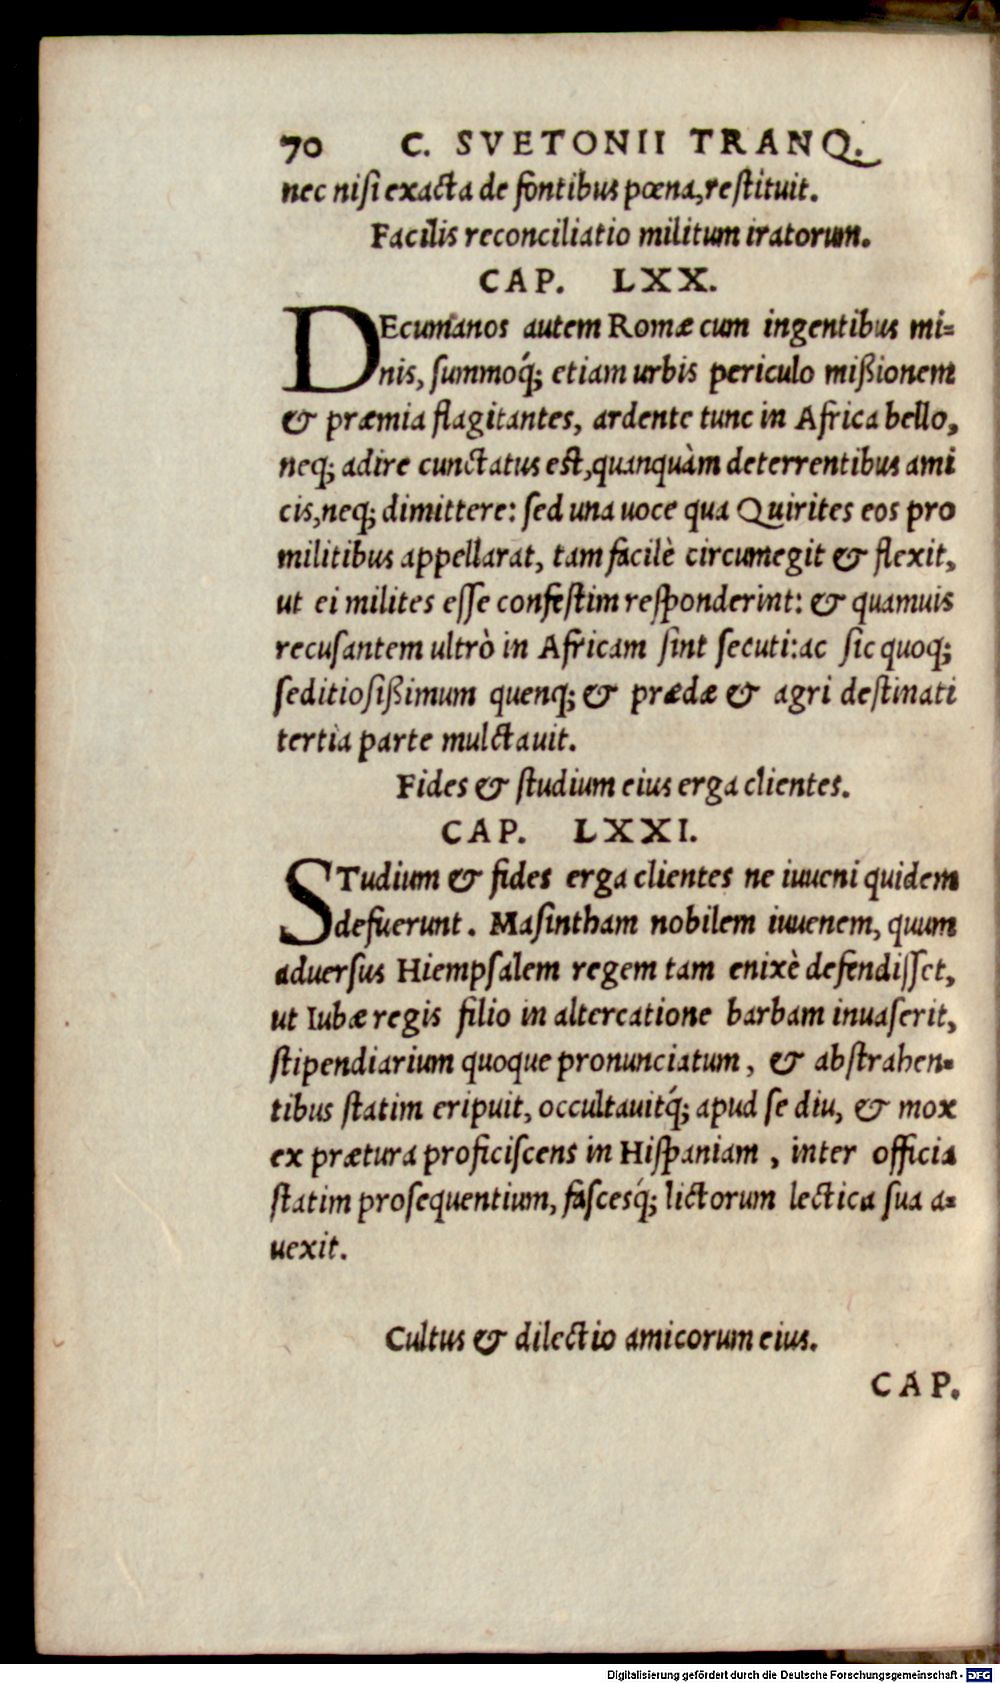 70 C. SVETONII TRANQ.
nec nisi exacta de fontibus pœna, restituit.
Facilis reconciliatio militum iratorum.
CAP. LXX.
DEcumanos autem Romæ cum ingentibus mi-
nis, summoq́; etiam urbis periculo mißionem
& præmia flagitantes, ardente tunc in Africa bello,
neq; adire cunctatus est, quanquàm deterrentibus ami
cis, neq; dimittere: sed una uoce qua Quirites eos pro
militibus appellarat, tam facilè circumegit & flexit,
ut ei milites esse confestim responderint: & quamuis
recusantem ultrò in Africam sint secuti: ac sic quoq;
seditiosißimum quenq; & prædæ & agri destinati
tertia parte mulctauit.
Fides & studium eius erga clientes.
CAP. LXXI.
STudium & fides erga clientes ne iuueni quidem
defuerunt. Masintham nobilem iuuenem, quum
aduersus Hiempsalem regem tam enixè defendisset,
ut Iubæ regis filio in altercatione barbam inuaserit,
stipendiarium quoque pronunciatum, & abstrahen-
tibus statim eripuit, occultauitq́; apud se diu, & mox
ex prætura proficiscens in Hispaniam, inter officia
statim prosequentium, fascesq́; lictorum lectica sua a-
uexit.
Cultus & dilectio amicorum eius.
CAP.
Digitalisierung gefördert durch die Deutsche Forschungsgemeinschaft - DFG